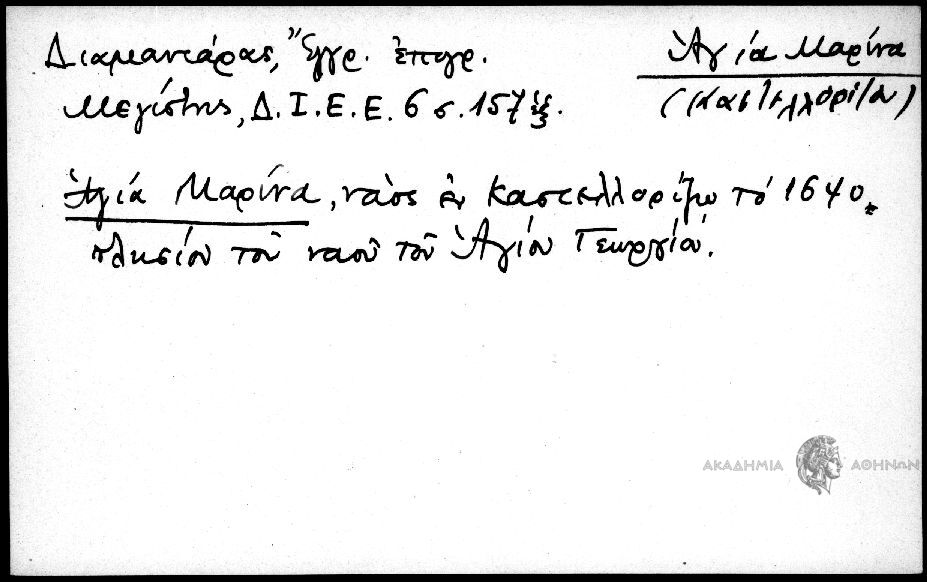 Διαμαντάρας, Ἔγγρ. ἐπιγρ.
Μεγίστης, Δ.Ι.Ε.Ε. 6 σ. 157 ἑξ.
Ἁγία Μαρίνα
(Καστελλορίζου)
Ἁγία Μαρίνα, ναὸς ἐν Καστελλορίζῳ τό 1640
πλησίον τοῦ ναοῦ τοῦ Ἁγίου Γεωργίου.
ΑΚΑΔΗΜΙΑ ΑΘΗΝΩΝ